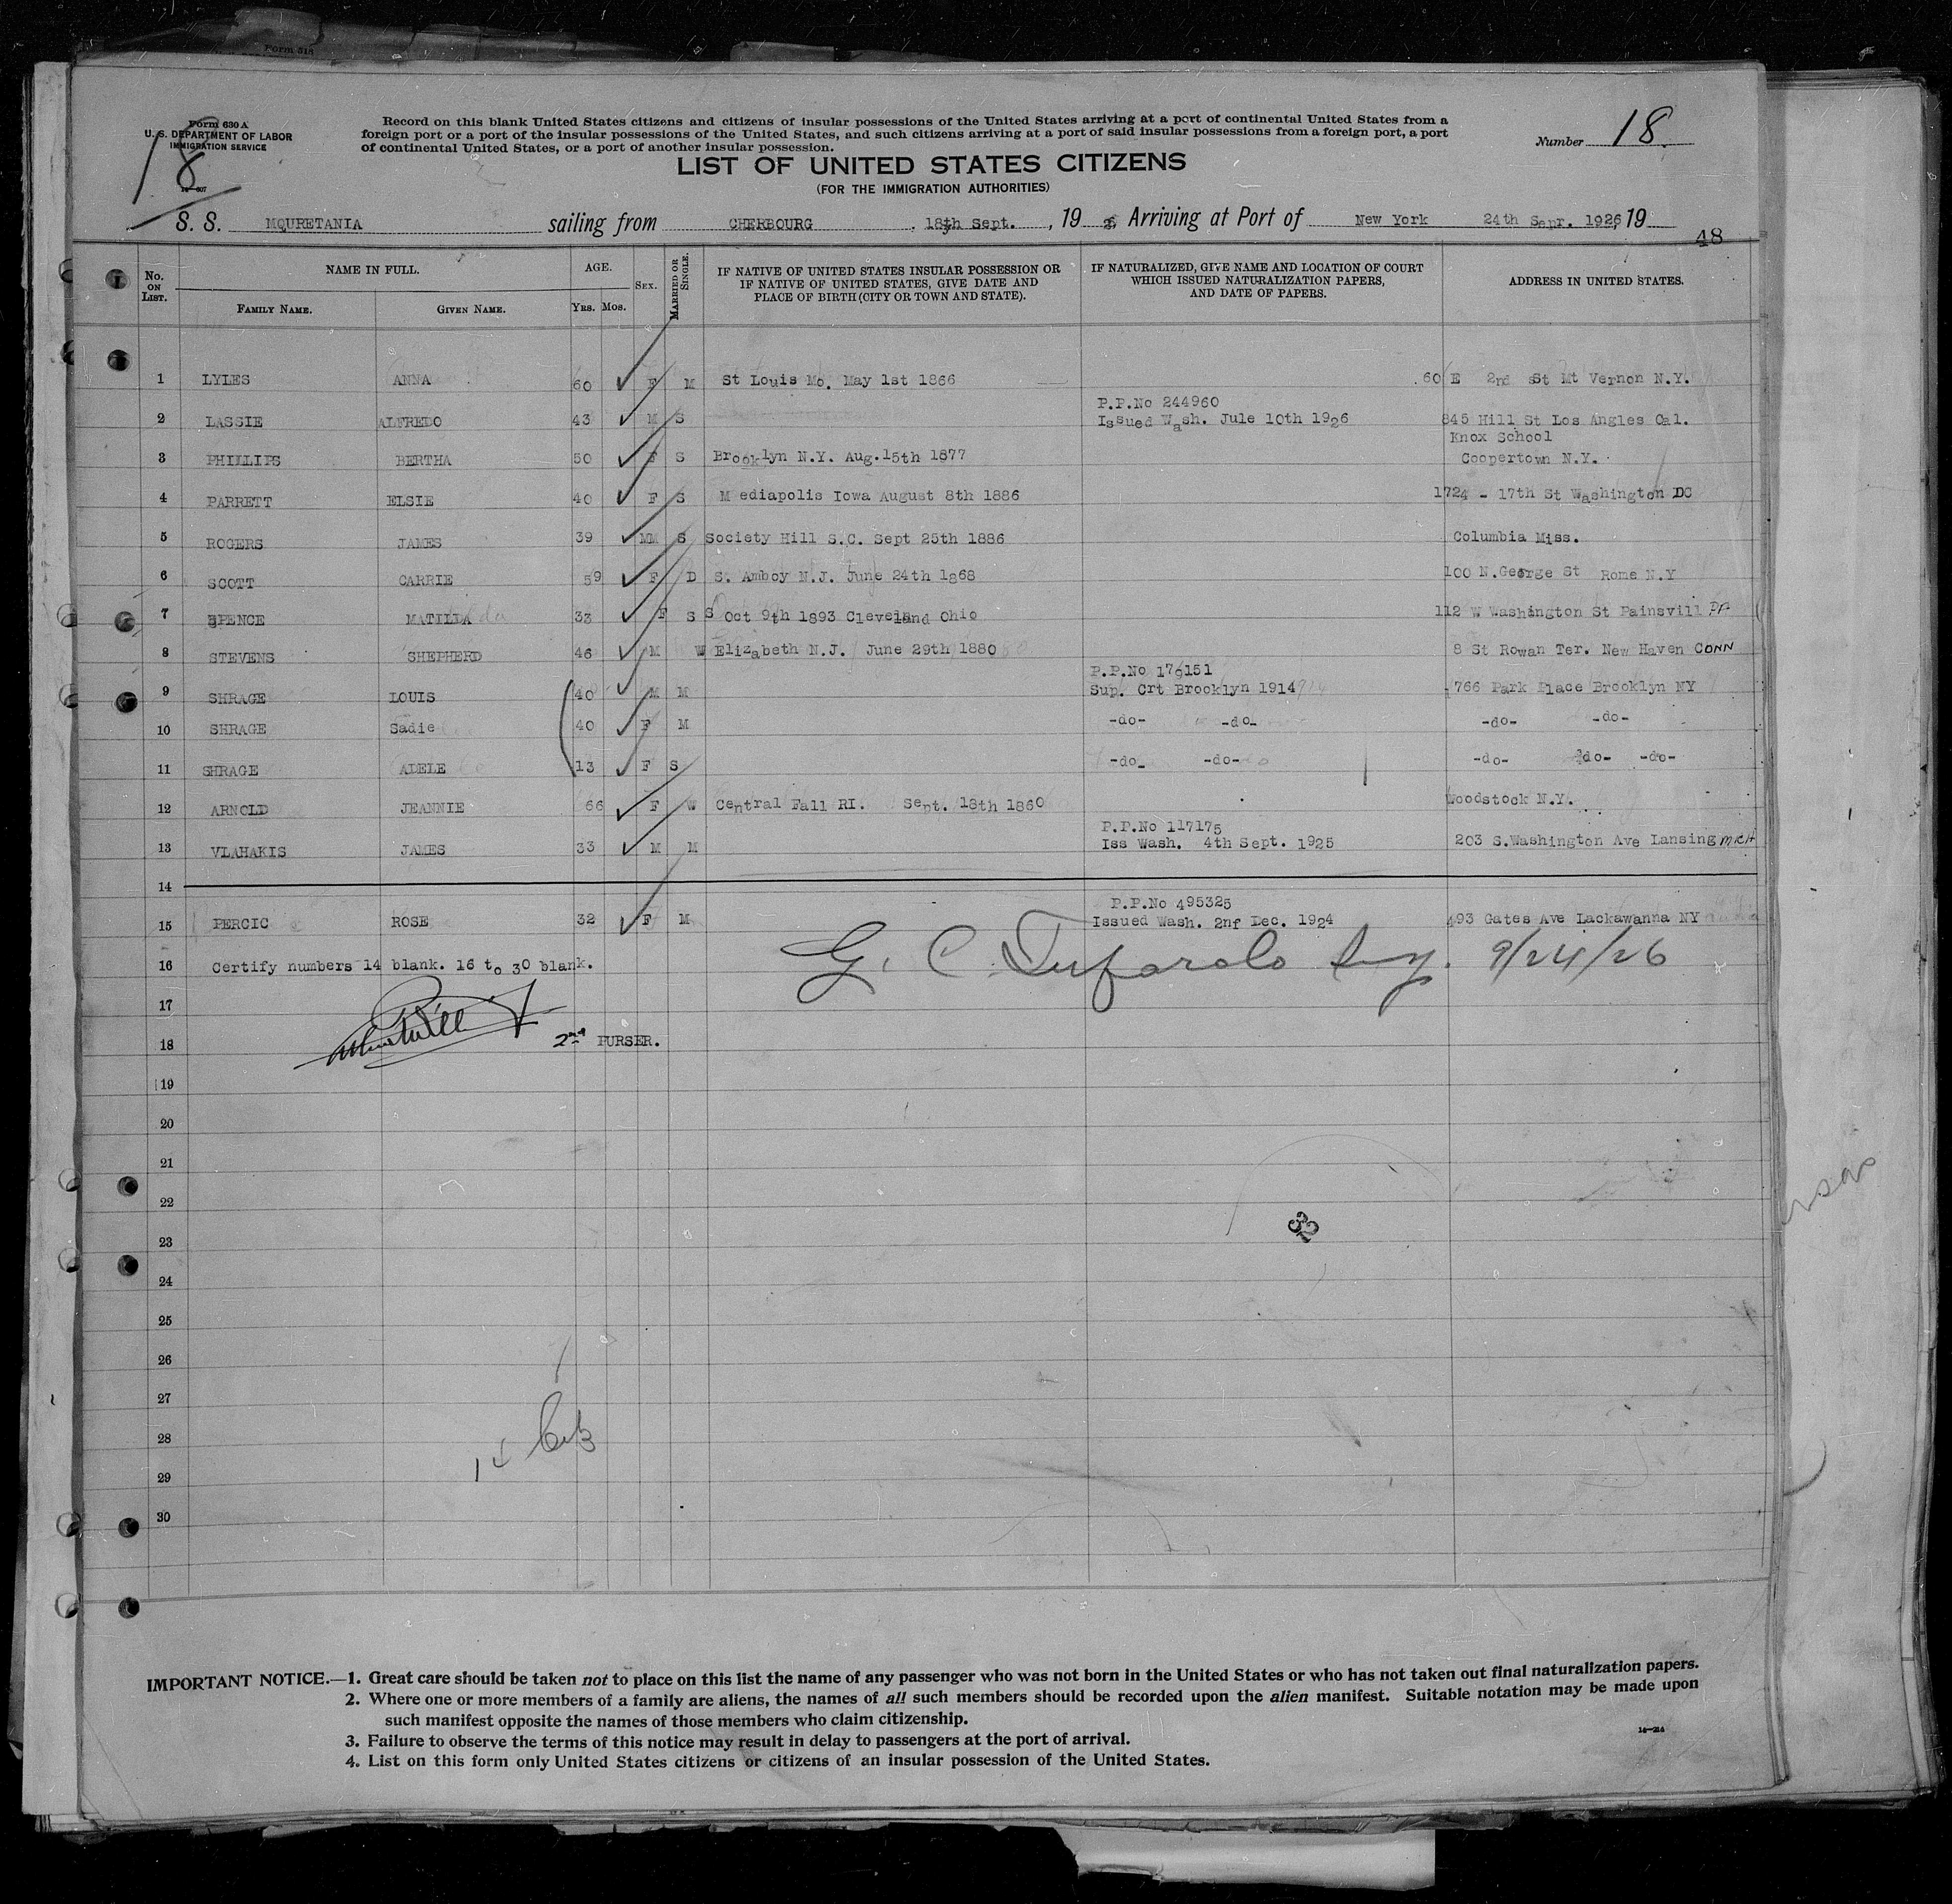 Form 518
Form 630 A
U. S. DEPARTMENT OF LABOR
IMMIGRATION SERVICE
18
Record on this blank United States citizens and citizens of insular possessions of the United States arriving at a port of continental United States from a
foreign port or a port of the insular possessions of the United States, and such citizens arriving at a port of said insular possessions from a foreign port, a port
of continental United States, or a port of another insular possession.
Number 18.
LIST OF UNITED STATES CITIZENS
(FOR THE IMMIGRATION AUTHORITIES)
S. S. MQURETANIA sailing from CHERBOURG , 18th Sept. , 19 26, Arriving at Port of New York 24th Sepr. 1926, 19
48
No. ON LIST. NAME IN FULL. AGE. SEX. MARRIED OR SINGLE. IF NATIVE OF UNITED STATES INSULAR POSSESSION OR IF NATIVE OF UNITED STATES, GIVE DATE AND PLACE OF BIRTH (CITY OR TOWN AND STATE). IF NATURALIZED, GIVE NAME AND LOCATION OF COURT WHICH ISSUED NATURALIZATION PAPERS, AND DATE OF PAPERS. ADDRESS IN UNITED STATES.
FAMILY NAME. GIVEN NAME. YRS. MOS.
1 LYLES ANNA 60 F M St Louis Mo. May 1st 1866 60 E 2nd St Mt Vernon N.Y.
P.P.No 244960
2 LASSIE ALFREDO 43 M S Issued Wash. Jule 10th 1926 845 Hill St Los Angles Cal.
Knox School
3 PHILLIPS BERTHA 50 F S Brooklyn N.Y. Aug.15th 1877 Coopertown N.Y.
4 PARRETT ELSIE 40 F S Mediapolis Iowa August 8th 1886 1724 - 17th St Washington DC
5 ROGERS JAMES 39 MM S Society Hill S.C. Sept 25th 1886 Columbia Miss.
6 SCOTT CARRIE 59 F D S. Amboy N.J. June 24th 1868 100 N.George St Rome N.Y
7 SPENCE MATILLA da 33 F S S Oct 9th 1893 Cleveland Ohio 112 W Washington St Painsvill PA
8 STEVENS SHEPHERD 46 M W Elizabeth N.J. June 29th 1880 8 St Rowan Ter. New Haven CONN
P.P.No 179151
9 SHRAGE LOUIS 40 M M Sup. Crt Brooklyn 1914 766 Park Place Brooklyn NY
10 SHRAGE Sadie 40 F M -do- -do- -do- -do-
11 SHRAGE ADELE 13 F S -do- -do- -do- do- -do-
12 ARNOLD JEANNIE 66 F W Central Fall RI. Sept. 18th 1860 Woodstock N.Y.
P.P.No 117175
13 VLAHAKIS JAMES 33 M M Iss Wash. 4th Sept. 1925 203 S.Washington Ave Lansing MICH
14
P.P.No 495325
15 PERCIC ROSE 32 F M Issued Wash. 2nf Dec. 1924 493 Gates Ave Lackawanna NY
16 Certify numbers 14 blank. 16 to 30 blank. G. C. 9/24/26
17
18 2nd PURSER.
19
20
21
22
32
23
24
25
26
27
28
14
29
30
IMPORTANT NOTICE.—1. Great care should be taken not to place on this list the name of any passenger who was not born in the United States or who has not taken out final naturalization papers.
2. Where one or more members of a family are aliens, the names of all such members should be recorded upon the alien manifest. Suitable notation may be made upon
such manifest opposite the names of those members who claim citizenship.
3. Failure to observe the terms of this notice may result in delay to passengers at the port of arrival.
4. List on this form only United States citizens or citizens of an insular possession of the United States.
14—214